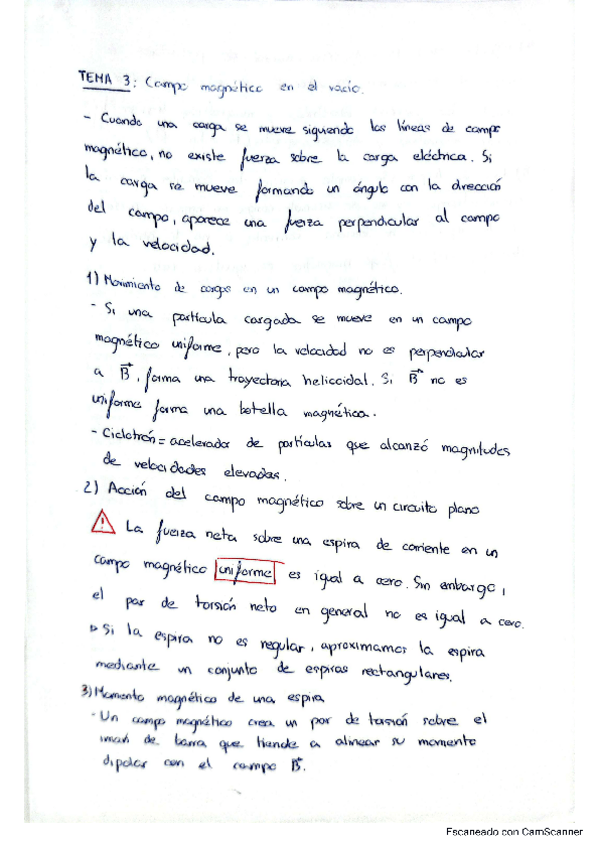 TEMA 3: Campo magnético en el vacío.
- Cuando una carga se mueve siguiendo las líneas de campo
magnético, no existe fuerza sobre la carga eléctrica. Si
la carga se mueve formando un ángulo con la dirección
del campo, aparece una fuerza perpendicular al campo
y la velocidad.
1) Movimiento de cargas en un campo magnético.
- Si una partícula cargada se mueve en un campo
magnético uniforme, pero la velocidad no es perpendicular
a B⃗, forma una trayectoria helicoidal. Si B⃗ no es
uniforme forma una botella magnética.
- Ciclotrón = acelerador de partículas que alcanzó magnitudes
de velocidades elevadas.
2) Acción del campo magnético sobre un circuito plano
⚠ La fuerza neta sobre una espira de corriente en un
campo magnético uniforme es igual a cero. Sin embargo,
el par de torsión neto en general no es igual a cero.
▷ Si la espira no es regular, aproximamos la espira
mediante un conjunto de espiras rectangulares.
3) Momento magnético de una espira
- Un campo magnético crea un par de torsión sobre el
iman de barra que tiende a alinear su momento
dipolar con el campo B⃗.
Escaneado con CamScanner